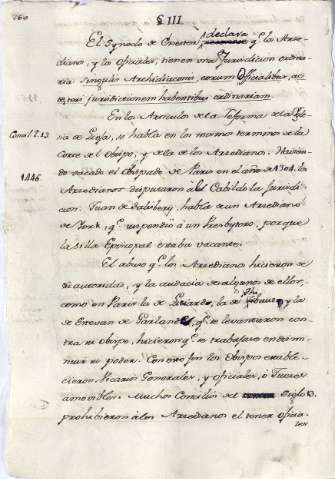 260
§ III
declara
El Synodo de Excester q.e los Arce-
dianos, y los oficiales, tienen una Jurisdicion ordina-
ria singulis Archidiaconis, eorum officialibus, ac-
que jurisdictionem habentibus ordinariam.
En los Articulos de la Reforma de la Igle-
sia de Lieja, se habla en los mismos terminos de la
Conil. t. 13.
Corte del Obispo, y de la de los Arcedianos. Havien-
do vacado el Obispado de Paris en el año de 1304. los
1446
Arcedianos disputaron al Cabildo la Jurisdi-
cion. Juan de Salisberij, habla de un Arcediano
de York q.e suspendió à un Presbytero, porque
la silla Episcopal estaba vacante.
El abuso q.e los Arcedianos hicieron de
su autoridad, y la audacia de algunos de ellos,
como en Paris la de y la
de Estevan de Garlande, q.e se levantaron con-
tra su Obispo, hicieron q.e se trabajase en dismi-
nuir su poder. Con este fin los Obispos estable-
cieron Vicarios Generales, y oficiales, ò Jueces
amovibles. Muchos Concilios del Siglo 13.
prohibieron à los Arcedianos el tener oficia-
les